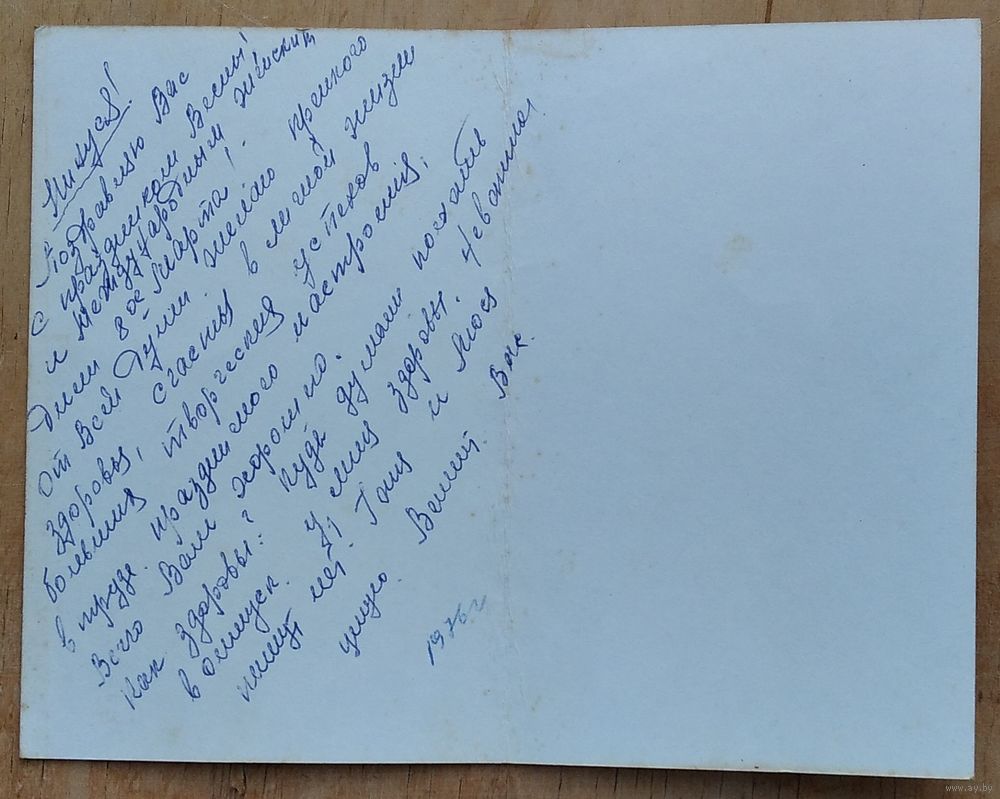 Нинуся!
Поздравляю Вас
с праздником Весны!
и международным женским
днем 8ое Марта!
От всей души желаю крепкого
здоровья, счастья в личной жизни
больших творческих успехов
в труде. праздничного настрония,
Всего Вам хорошего.
Как здоровье? Куда думаете поехать
в отпуск. У мня здоровья
нет. Тоня и Люся
целую. Вас.
1976 г
www.ay.by